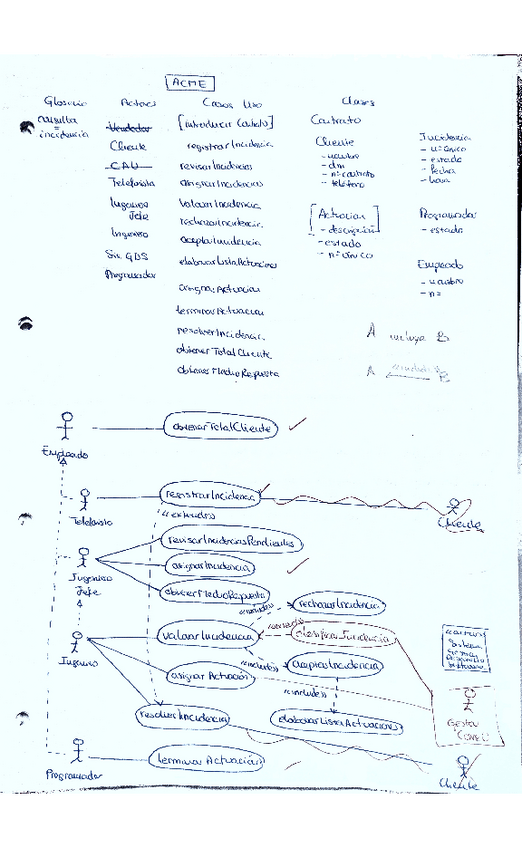 ACME
Glosario Actores Casos Uso Clases
consulta
=
incidencia
Vendedor
Cliente
CAU
Telefonista
Ingeniero
Jefe
Ingeniero
Sis. GDS
Programador
[introducir Contrato]
registrarIncidencia
revisarIncidencias
asignarIncidencia
valorarIncidencia
rechazarIncidencia
aceptarIncidencia
elaborarListaActuaciones
asignarActuacion
terminarActuacion
resolverIncidencia
obtenerTotalCliente
obtenerMedioRepuesta
Contrato
Cliente
- nombre
- dni
- nº contrato
- teléfono
[Actuacion]
- descripción
- estado
- nº único
Incidencia
- nº único
- estado
- fecha
- hora
Programador
- estado
Empleado
- nombre
- nº
A incluye B
A B
Empleado
obtenerTotalCliente
Telefonista
registrarIncidencia
Cliente
<<extends>>
revisarIncidenciasPendientes
Ingeniero
Jefe
asignarIncidencia
obtenerMedioRepuesta
<<includes>>
rechazarIncidencia
Ingeniero
valorarIncidencia
<<includes>>
aceptarIncidencia
asignar Actuación
<<includes>>
resolverIncidencia
elaborarListaActuaciones
Gestor
Cliente
Programador
terminarActuación